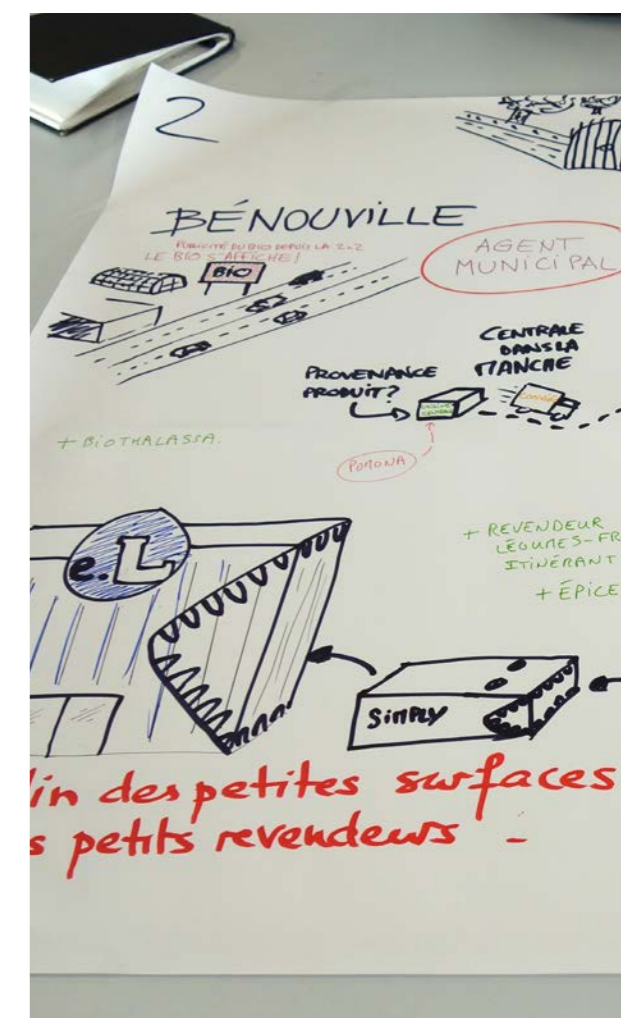 2
BÉNOUVILLE
PUBLICITÉ DU BIO DEPUIS LA 2x2
LE BIO S'AFFICHE!
BIO
AGENT
MUNICIPAL
CENTRALE
DANS LA
MANCHE
PROVENANCE
PRODUIT?
POMONA
+ BIOTHALASSA.
+ REVENDEUR
LÉGUMES-FR
ITINÉRANT
+ ÉPICE
e.L
SIMPLY
in des petites surfaces
s petits revendeurs -